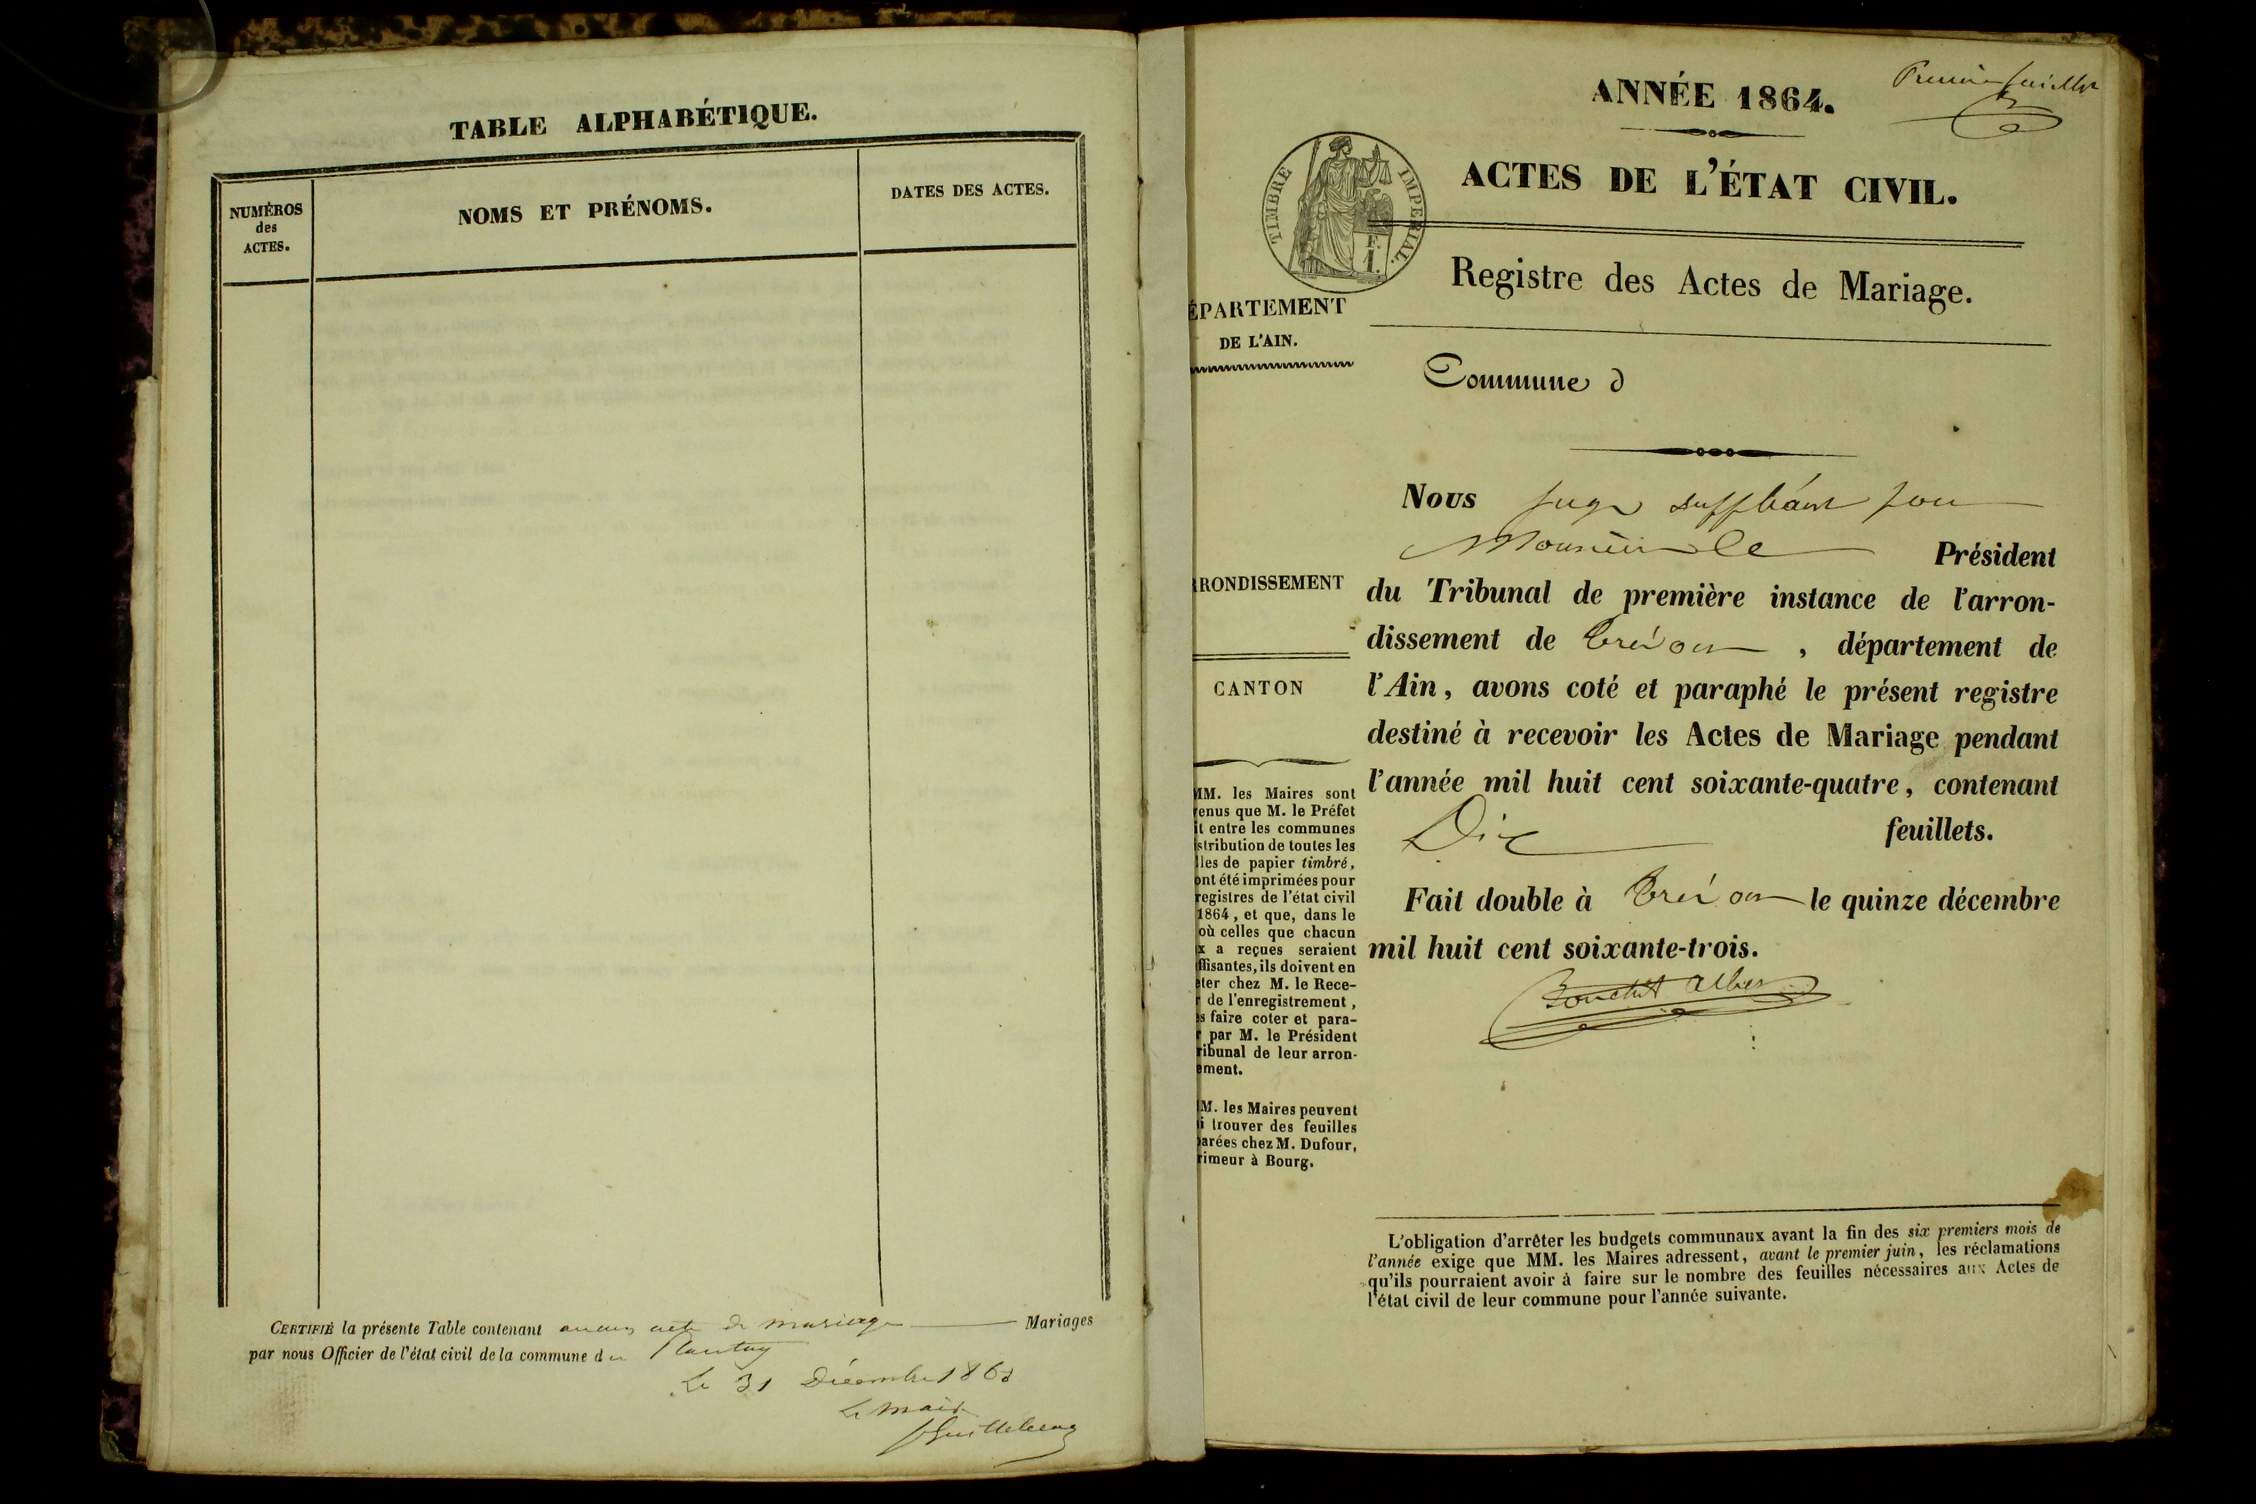 TABLE ALPHABÉTIQUE.
NUMÉROS
des
ACTES.
NOMS ET PRÉNOMS.
DATES DES ACTES.
CERTIFIÉ la présente Table contenant aucun acte de mariage Mariages
par nous Officier de l'état civil de la commune de Plantay
Le 31 Décembre 1863
Le Maire
Premier feuillet
ANNÉE 1864.
ACTES DE L'ÉTAT CIVIL.
TIMBRE IMPERIAL.
F.
1.
Registre des Actes de Mariage.
ÉPARTEMENT
DE L'AIN.
Commune d
Nous Juge suppléant pour
Monsieur le Président
RRONDISSEMENT
du Tribunal de première instance de l'arron-
dissement de Trévoux, département de
CANTON
l'Ain, avons coté et paraphé le présent registre
destiné à recevoir les Actes de Mariage pendant
l'année mil huit cent soixante-quatre, contenant
Dix feuillets.
Fait double à Trévoux le quinze décembre
mil huit cent soixante-trois.
MM. les Maires sont
enus que M. le Préfet
it entre les communes
stribution de toutes les
lles de papier timbré,
ont été imprimées pour
registres de l'état civil
1864, et que, dans le
où celles que chacun
x a reçues seraient
ffisantes, ils doivent en
eter chez M. le Rece-
r de l'enregistrement,
es faire coter et para-
r par M. le Président
ribunal de leur arron-
ement.
M. les Maires peuvent
i trouver des feuilles
parées chez M. Dufour,
rimeur à Bourg.
L'obligation d'arrêter les budgets communaux avant la fin des six premiers mois de
l'année exige que MM. les Maires adressent, avant le premier juin, les réclamations
qu'ils pourraient avoir à faire sur le nombre des feuilles nécessaires aux Actes de
l'état civil de leur commune pour l'année suivante.